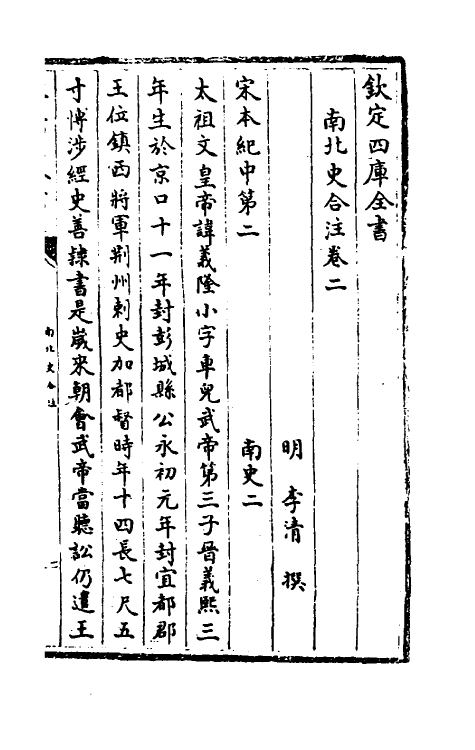 欽定四庫全書
南北史合注卷二
明 李清 撰
宋本紀中第二 南史二
太祖文皇帝諱義隆小字車兒武帝第三子晉義熙三
年生於京口十一年封彭城縣公永初元年封宜都郡
王位鎮西將軍荆州刺史加都督時年十四長七尺五
寸博涉經史善隸書是歲來朝會武帝當聽訟仍遣王
南北史合注